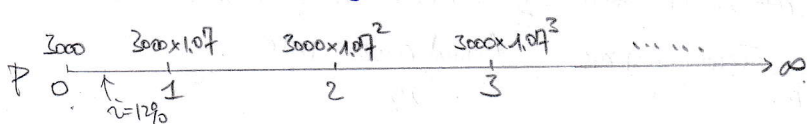 3000 3000×1.07 3000×1.07² 3000×1.07³ ......
P 0 1 2 3 ∞
i=12%